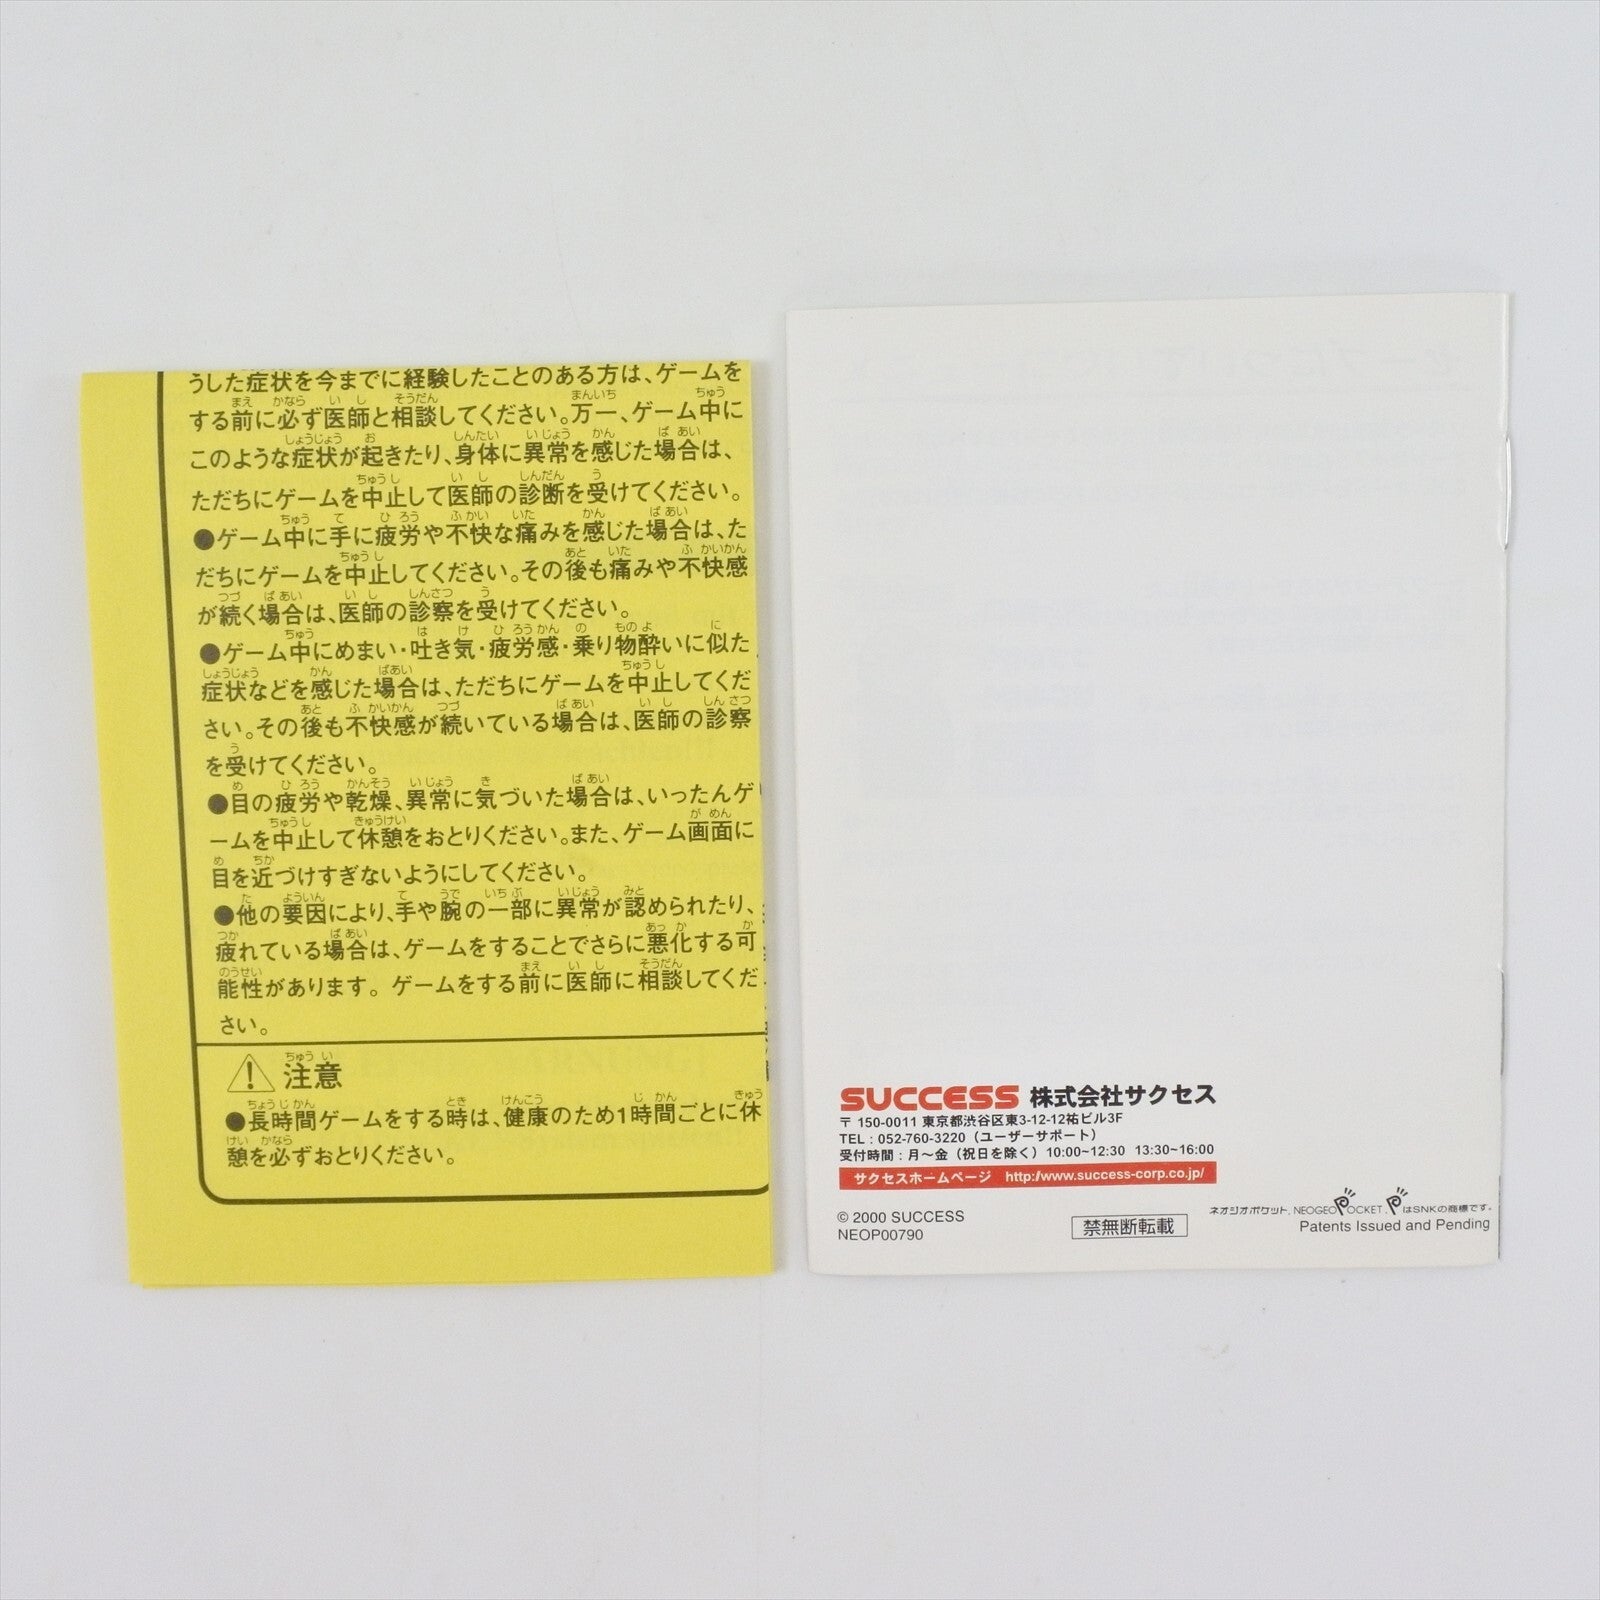 うした症状を今までに経験したことのある方は、ゲームを
する前に必ず医師と相談してください。万一、ゲーム中に
このような症状が起きたり、身体に異常を感じた場合は、
ただちにゲームを中止して医師の診断を受けてください。
●ゲーム中に手に疲労や不快な痛みを感じた場合は、た
だちにゲームを中止してください。その後も痛みや不快感
が続く場合は、医師の診察を受けてください。
●ゲーム中にめまい・吐き気・疲労感・乗り物酔いに似た
症状などを感じた場合は、ただちにゲームを中止してくだ
さい。その後も不快感が続いている場合は、医師の診察
を受けてください。
●目の疲労や乾燥、異常に気づいた場合は、いったんゲ
ームを中止して休憩をおとりください。また、ゲーム画面に
目を近づけすぎないようにしてください。
●他の要因により、手や腕の一部に異常が認められたり、
疲れている場合は、ゲームをすることでさらに悪化する可
能性があります。ゲームをする前に医師に相談してくだ
さい。
注意
●長時間ゲームをする時は、健康のため1時間ごとに休
憩を必ずおとりください。
SUCCESS 株式会社サクセス
〒150-0011 東京都渋谷区東3-12-12祐ビル3F
TEL：052-760-3220（ユーザーサポート）
受付時間：月～金（祝日を除く）10:00~12:30 13:30~16:00
サクセスホームページ http://www.success-corp.co.jp/
© 2000 SUCCESS
NEOP00790
禁無断転載
ネオジオポケット, NEOGEO POCKET, PはSNKの商標です。
Patents Issued and Pending